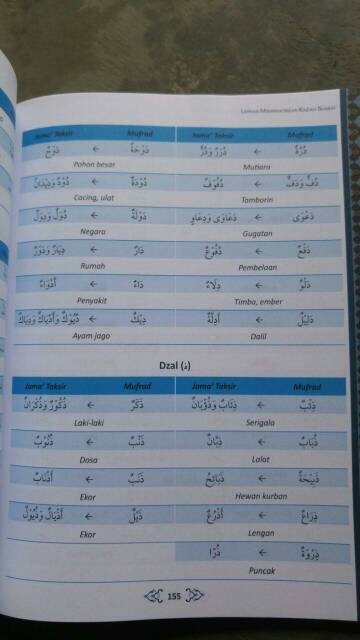 LATIHAN MEMANTAPKAN KAIDAH SHARAF
Mufrad Jama' Taksir Mufrad Jama' Taksir
دُرَّةٌ ← دُرَرٌ وَدُرٌّ دَوْحَةٌ ← دَوْحٌ
Mutiara Pohon besar
دُفٌّ وَدَفٌّ ← دُفُوْفٌ دُوْدَةٌ ← دُوْدٌ وَدِيْدَانٌ
Tamborin Cacing, ulat
دَعْوَى ← دَعَاوَى وَدِعَاوٍ دَوْلَةٌ ← دُوَلٌ وَدِوَلٌ
Gugatan Negara
دَفْعٌ ← دُفُوْعٌ دَارٌ ← دِيَارٌ وَدُوْرٌ
Pembelaan Rumah
دَلْوٌ ← دِلَاءٌ دَاءٌ ← أَدْوَاءٌ
Timba, ember Penyakit
دَلِيْلٌ ← أَدِلَّةٌ دِيْكٌ ← دُيُوْكٌ وَأَدْيَاكٌ وَدِيَكَةٌ
Dalil Ayam jago
Dzal (ذ)
Mufrad Jama' Taksir Mufrad Jama' Taksir
ذِئْبٌ ← ذِئَابٌ وَذُؤْبَانٌ ذَكَرٌ ← ذُكُوْرٌ وَذُكْرَانٌ
Serigala Laki-laki
ذُبَابٌ ← ذِبَّانٌ ذَنْبٌ ← ذُنُوْبٌ
Lalat Dosa
ذَبِيْحَةٌ ← ذَبَائِحُ ذَنَبٌ ← أَذْنَابٌ
Hewan kurban Ekor
ذِرَاعٌ ← أَذْرُعٌ ذَيْلٌ ← أَذْيَالٌ وَذُيُوْلٌ
Lengan Ekor
ذِرْوَةٌ ← ذُرًا
Puncak
155